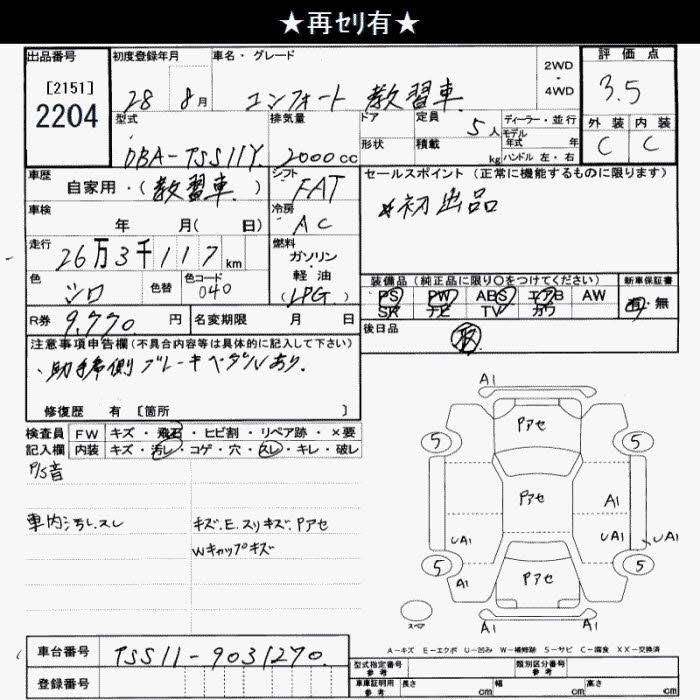 ★再ｾﾘ有★
出品番号
[2151]
2204
初度登録年月
28 8月
車名・グレード
コンフォート 教習車
2WD
・
4WD
評価点
3.5
外装 内装
C C
型式
DBA-TSS11Y
排気量
2000cc
ドア
形状
定員 5人
積載 kg
ディーラー・並行
モデル
年式 年
ハンドル 左・右
車歴
自家用・(教習車)
シフト
FAT
冷房
AC
車検
年 月( 日)
走行
26万3千117km
燃料
ガソリン
軽油
(LPG)
色
シロ
色替
色コード
040
R券 9,770 円
名変期限 月 日
セールスポイント (正常に機能するものに限ります)
初出品
装備品 (純正品に限り○をつけてください)
PS PW ABS エアB AW
SR ナビ TV カワ
新車保証書
有・無
後日品
注意事項申告欄(不具合内容等は具体的に記入して下さい)
・助手席側ブレーキペダルあり.
修復歴 有 [箇所 ]
検査員 FW キズ・飛石・ヒビ割・リペア跡・×要
記入欄 内装 キズ・汚レ・コゲ・穴・スレ・キレ・破レ
P/S音
車内汚レスレ
キズ.E.スリキズ.Pアセ
Wキャップキズ
A1
Pアセ
5 5
Pアセ A1
UA1 UA1
5 5
A1 Pアセ
スペア
A1 A1
A-キズ E-エクボ U-凹み W-補修跡 S-サビ C-腐食 XX-交換済
車台番号 TSS11-9031270
登録番号
型式指定番号
参考
類別区分番号
参考
車庫証明用
参考
長さ cm 幅 cm 高さ cm